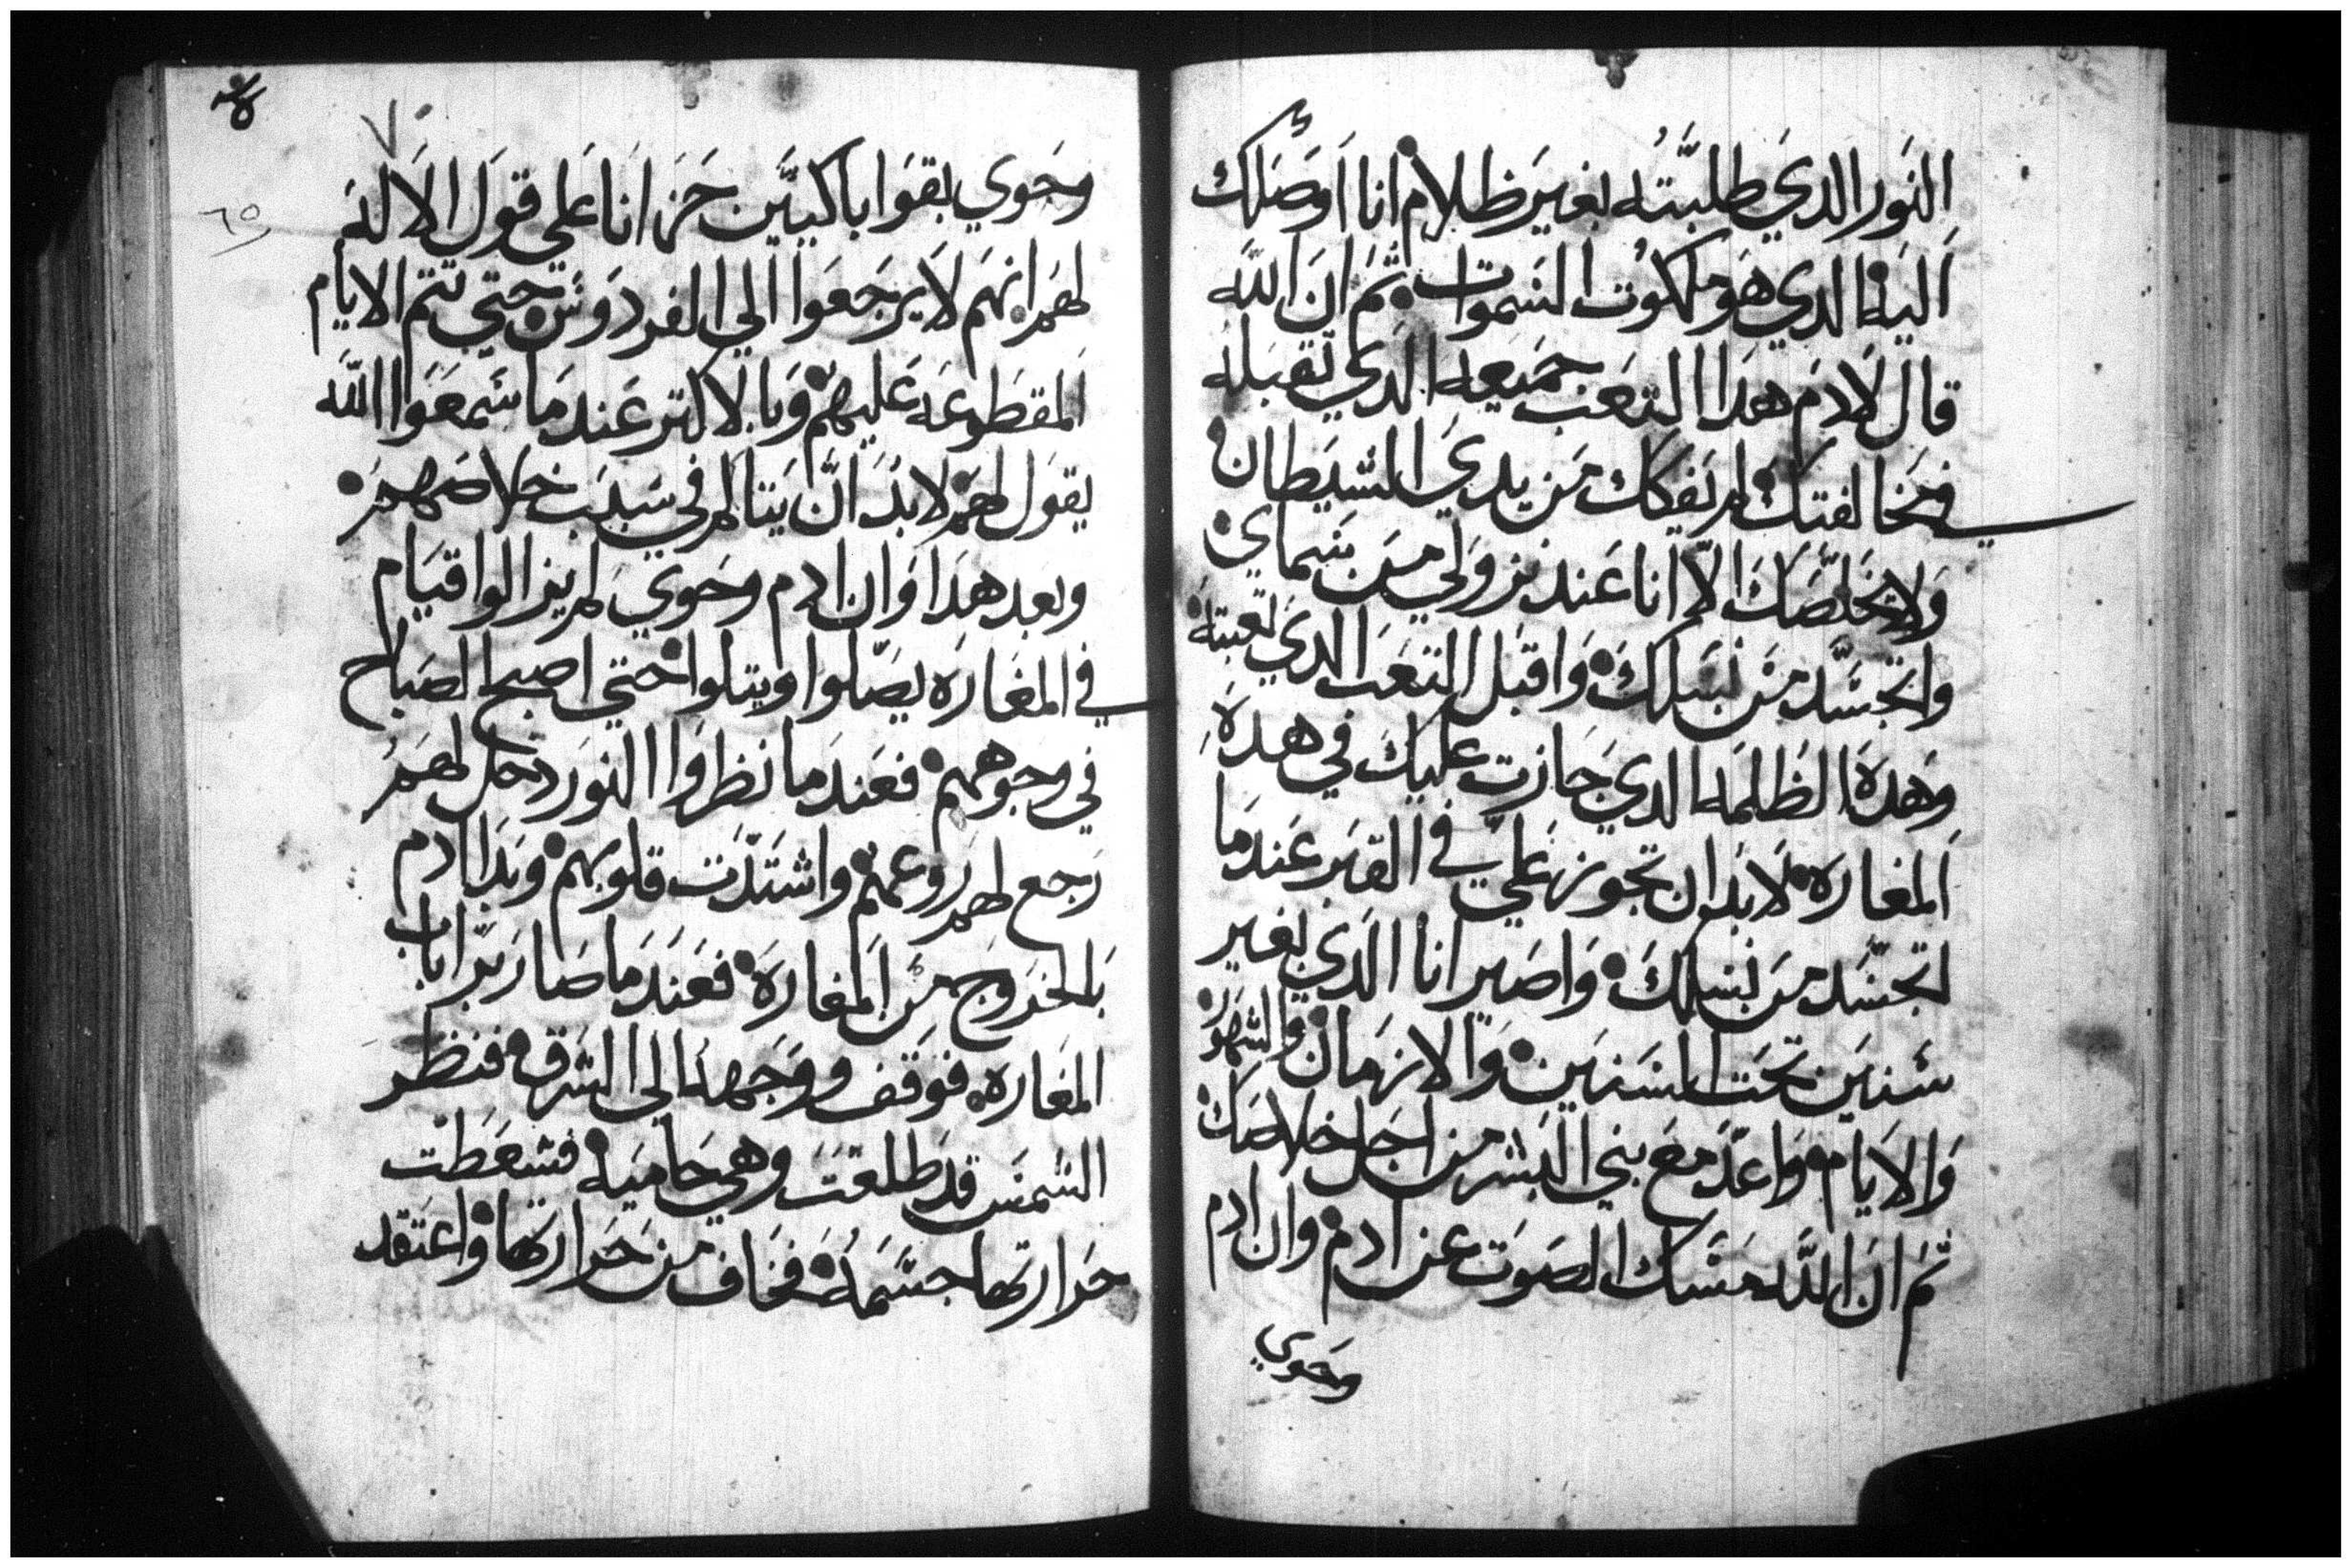 النور الدي طلبته بغير ظلام انا اوصلك
اليه الدي هو ملكوت السموات ثم ان الله
قال لادم هدا التعب جميعه الدي تقبله
في مخالفتك لم يفكك من يدي الشيطان
ولا يخلصك الا انا عند نزولي من سماي
واتجسد من نسلك واقبل التعب الدي تعبته
وهده الظلمه الدي جازت عليك في هده
المغاره لابد ان تجوز علي في القبر عندما
اتجسد من نسلك واصير انا الدي بغير
سنين تحت السنين والازمان والشهور
والايام واعد مع بني البشر من اجل خلاصك
ثم ان الله مسك الصوت عن ادم وان ادم
وحوي
٦٥
وحوي بقوا باكيين حزانا علي قول الاله
لهم انهم لا يرجعوا الي الفردوس حتي تتم الايام
المقطوعه عليهم وبالاكتر عندما سمعوا الله
يقول لهم لابد ان يتالم في سبب خلاصهم
وبعد هدا وان ادم وحوي لم يزالوا قيام
في المغاره يصلوا ويتلوا حتي اصبح الصباح
في وجوههم فعندما نظروا النور دخل لهم
رجع لهم روعهم واشتدت قلوبهم وبدا ادم
بالخروج من المغاره فعندما صار برا باب
المغاره فوقف ووجهه الي الشرق فنظر
الشمس قد طلعت وهي حاميه فشعطت
حرارتها جسمه فخاف من حرارتها واعتقد